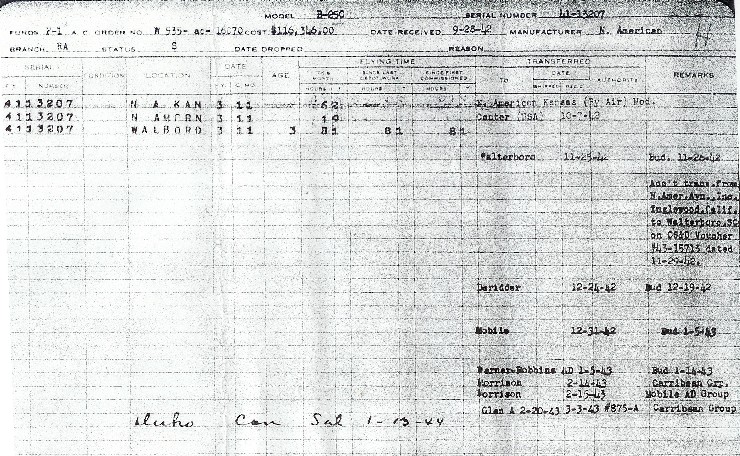 MODEL B-25C SERIAL NUMBER 41-13207
FUNDS P-1 A C ORDER NO. W 535- ac- 16070 COST $116,346.00 DATE RECEIVED 9-28-42 MANUFACTURER N. American
BRANCH RA STATUS S DATE DROPPED REASON
SERIAL CONDITION LOCATION DATE AGE FLYING TIME TRANSFERRED REMARKS
NUMBER THIS MONTH SINCE LAST SINCE FIRST COMMISSIONED TO DATE AUTHORITY
HOURS HOURS HOURS
4113207 N A KAN 3 11 62 N. American Kansas (By Air) Mod.
4113207 N AMERN 3 11 19 Center (USA) 10-7-42
4113207 WALBORO 3 11 3 81 81 81
Walterboro 11-25-42 Bud. 11-28-42
Acc't trans. from
N.Amer.Avn., Inc.
Inglewood, Calif.
to Walterboro, SC
on Voucher
#43-15713 dated
11-29-42.
Deridder 12-24-42 Bud 12-19-42
Mobile 12-31-42 Bud 1-5-43
Warner-Robbins AD 1-5-43 Bud 1-14-43
Morrison 2-14-43 Carribean Grp.
Morrison 2-15-43 Mobile AD Group
Glen A 2-20-43 3-3-43 #875-A Carribean Group
Con Sal 1-13-44